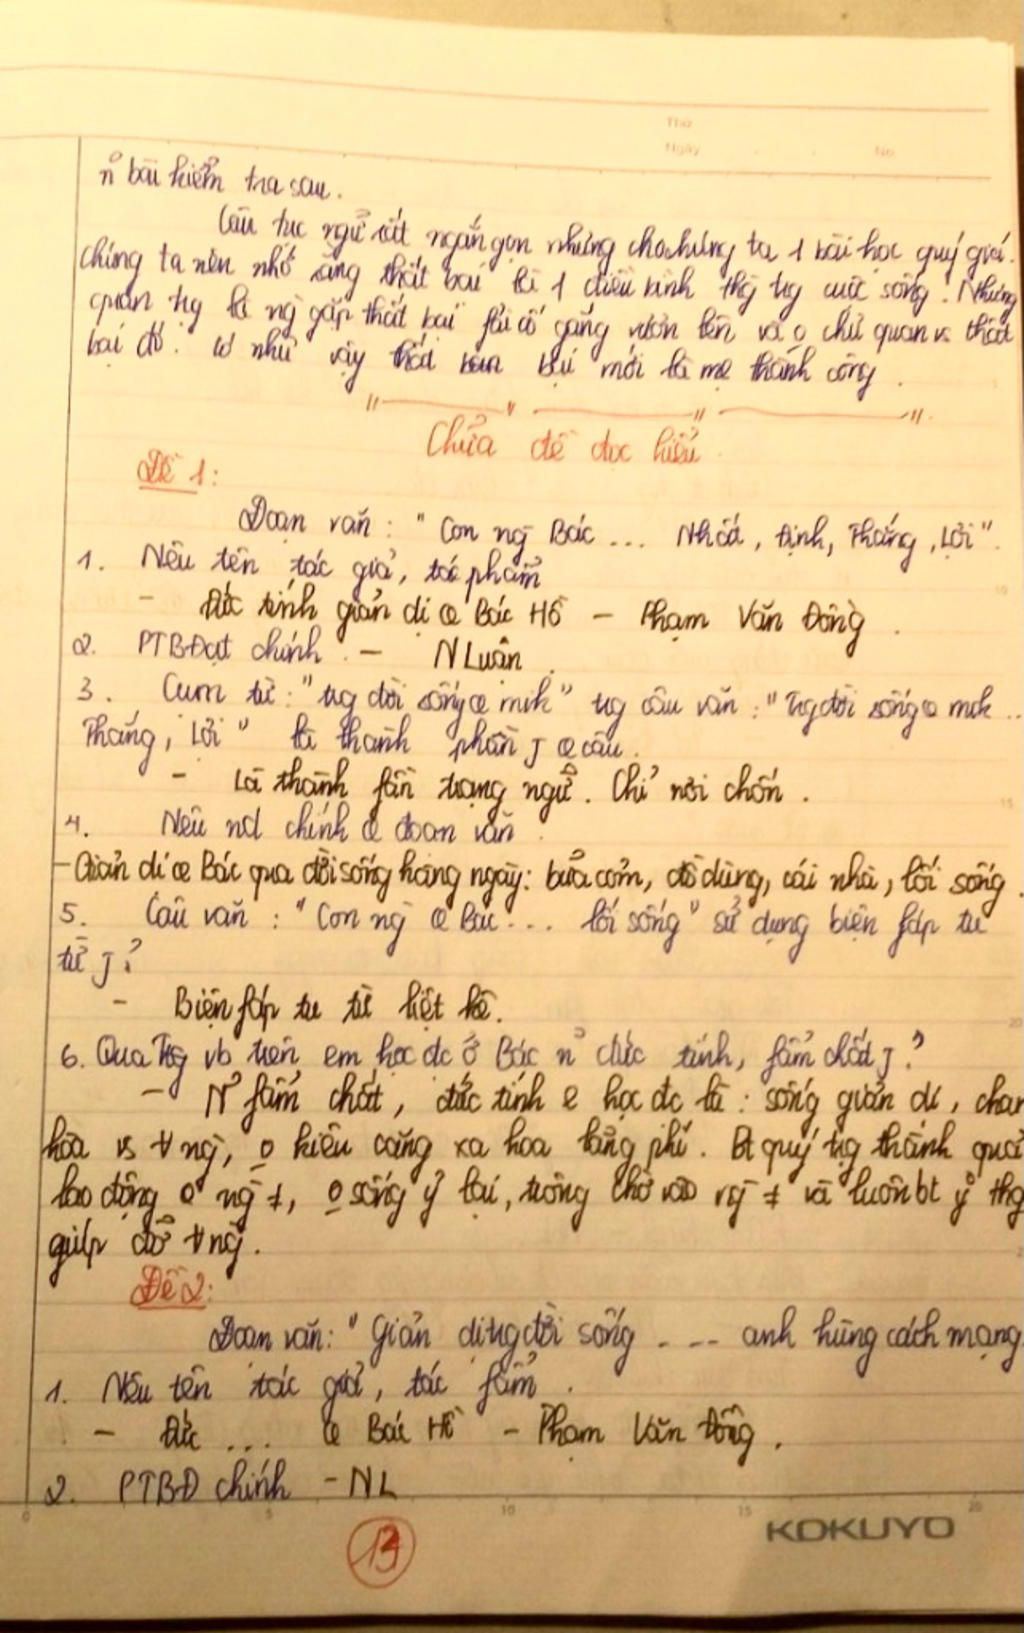 Thứ
Ngày No
n̉ bài kiểm tra sau.
Câu tục ngữ rất ngắn gọn nhưng cho chúng ta 1 bài học quý giá.
Chúng ta nên nhớ rằng thất bại là 1 điều bình thg tg cuộc sống! Nhưng
quan tg là ng̀ gặp thất bại fải cố gắng vươn lên và o chủ quan vs thất
bại đó. Có như vậy thất bại mới là mẹ thành công.
Chữa đề đọc hiểu
Đề 1:
Đoạn văn: "Con ng̀ Bác ... Nhất, định, Thắng, Lợi".
1. Nêu tên tác giả, tác phẩm
- Đức tính giản dị @ Bác Hồ - Phạm Văn Đồng.
2. PTBĐạt chính - N Luận.
3. Cụm từ: "tg đời sống @ mik" tg câu văn: "Tg đời sống @ mik ...
Thắng, Lợi" là thành phần J @ câu.
- Là thành fần trạng ngữ. Chỉ nơi chốn.
4. Nêu nd chính @ đoạn văn.
- Giản dị @ Bác qua đời sống hàng ngày: bữa cơm, đồ dùng, cái nhà, lối sống.
5. Câu văn: "Con ng̀ @ Bác ... lối sống" sử dụng biện fáp tu
từ J?
- Biện fáp tu từ liệt kê.
6. Qua tg vb trên em học đc ở Bác n̉ đức tính, fẩm chất J?
- N̉ fẩm chất, đức tính e học đc là: sống giản dị, chan
hòa vs ∀ ng̀, o kiêu căng xa hoa lãng phí. Bt quý tg thành quả
lao động @ ng̀ ≠, o sống ỷ lại, trông chờ vào ng̀ ≠ và luôn bt y thg
giúp đỡ ∀ ng̀.
Đề 2:
Đoạn văn: "Giản dị tg đời sống .... anh hùng cách mạng
1. Nêu tên tác giả, tác fẩm.
- Đức ... @ Bác Hồ - Phạm Văn Đồng.
2. PTBĐ chính - NL
KOKUYO
13